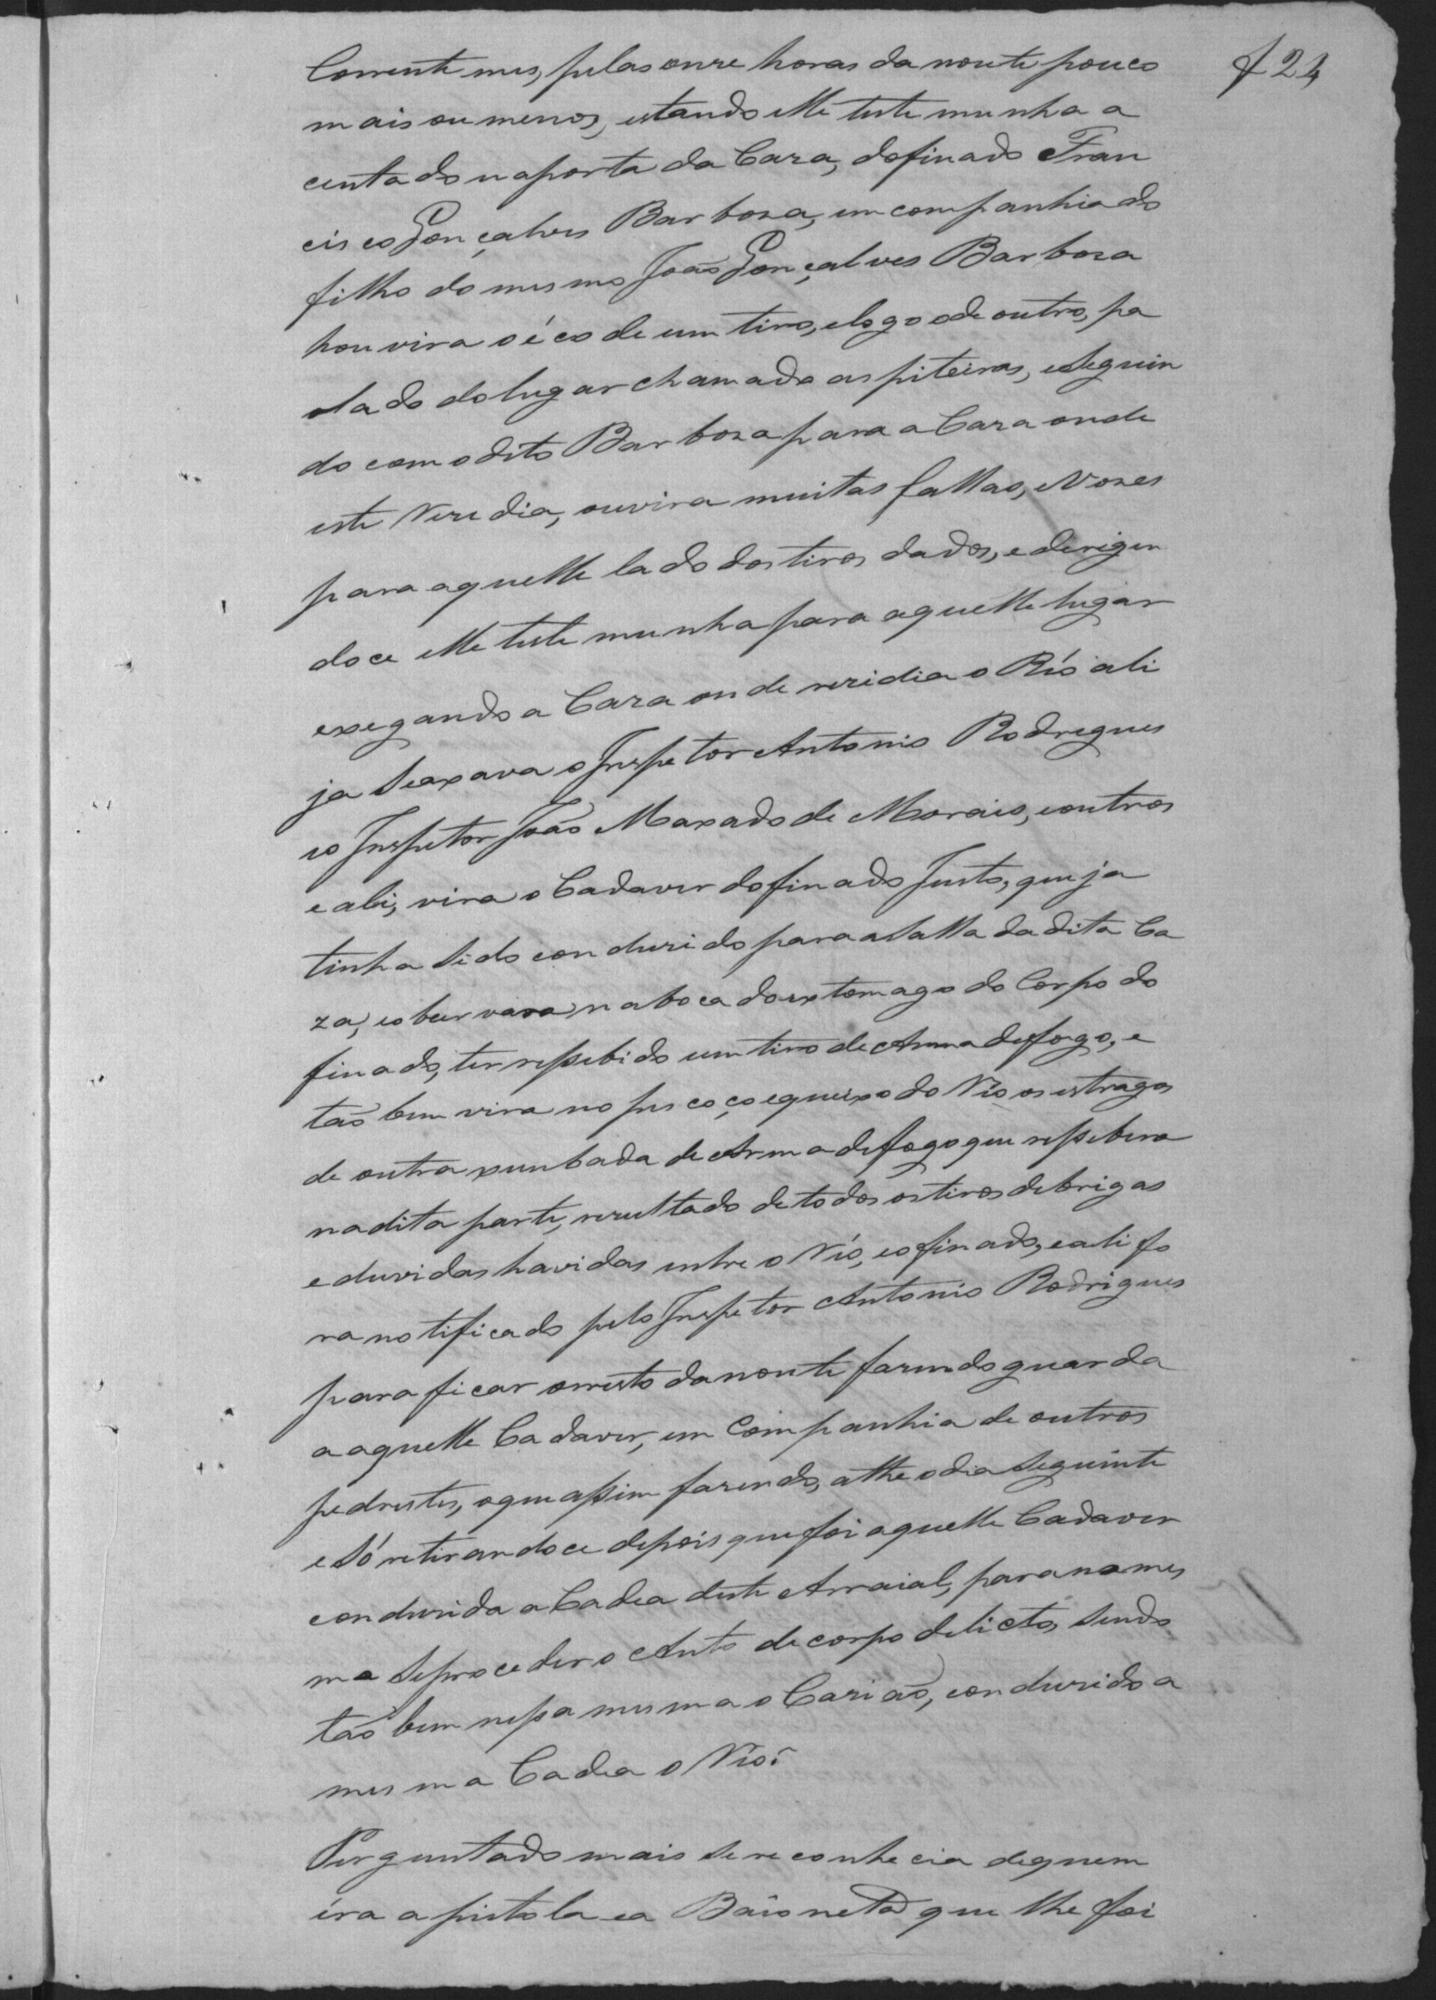 f 24
Corrente mes, pelas onze horas da noute pouco
mais ou menos, estando elle testemunha a
centado na porta da Caza, do finado Fran
cisco Gonçalves Barboza, em companhia do
filho do mesmo João Gonçalves Barboza
houvira o éco de um tiro, e logo o de outro, pa
o lado do lugar chamado as piteiras, e Seguin
do com o dito Barboza para a Caza onde
este Rezedia, ouvira muitas fallas, e Vozes
para aquelle lado dos tiros dados, e derigin
doce elle testemunha para aquelle lugar
exegando a Caza onde rezidia o Río ali
ja Seaxava o Inspetor Antonio Rodregues
eo Inspetor João Maxado de Morais, e outros
e ahi, vira o Cadaver do finado Justo, que ja
tinha Sido conduzido para a Salla da dita Ca
za, e obcervara na boca do extomago do Corpo do
finado, ter ressebido um tiro de Arma de fogo, e
tão bem vira no pescoço e queixo do Río os estragos
de outra xumbada de Arma de fogo que ressebera
na dita parte, rezultado de todos os tiros de brigas
e duvidas havidas entre o Río, e o finado, e ali fo
ra notificado pelo Inspetor Antonio Rodrigues
para ficar o resto da noute fazendo guarda
a aquelle Cadaver, em Companhia de outros
pedrestes, o que assim fazendo, athe o dia Seguinte
e Só retirandoce depois que foi aquelle Cadaver
conduzido a Cadea deste Arraial, para na mes
ma Seproceder o Auto de corpo delicto, Sendo
tão bem nessa mesma o Cazião, conduzido a
mesma Cadea o Río.
Perguntado mais se reconhecia dequem
éra a pistola e a Baioneta que lhe foi